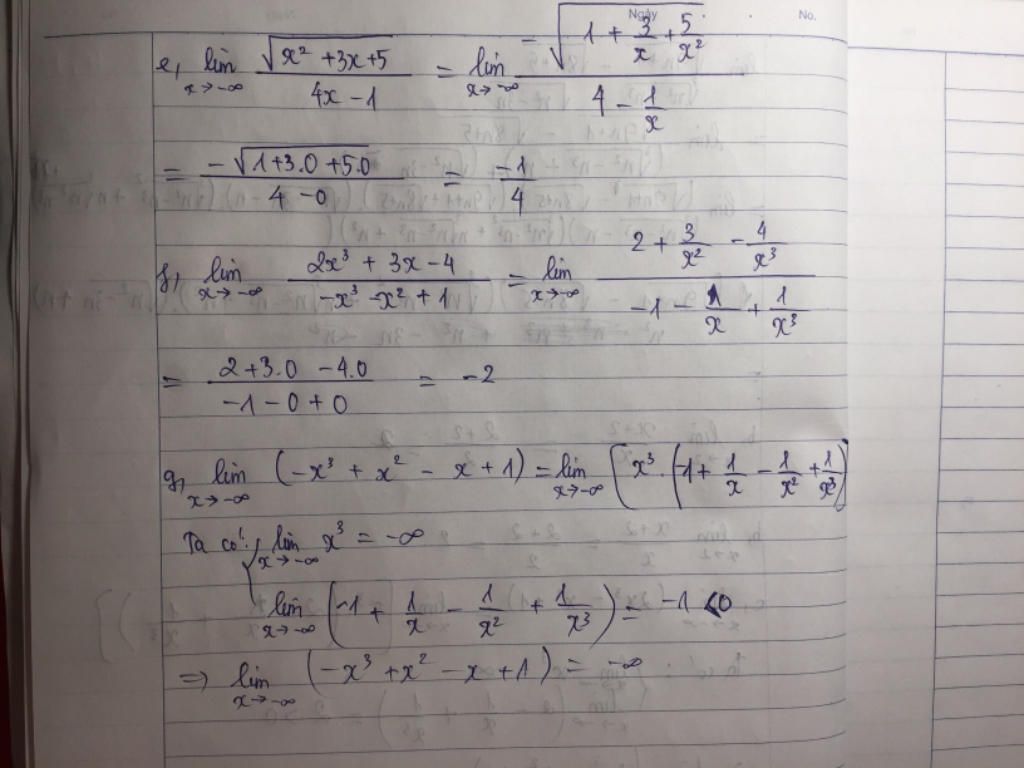 Ngày No.
e, lim_{x→-∞} \frac{\sqrt{x² + 3x + 5}}{4x - 1} = lim_{x→-∞} \frac{-\sqrt{1 + \frac{3}{x} + \frac{5}{x²}}}{4 - \frac{1}{x}}
= \frac{-\sqrt{1 + 3.0 + 5.0}}{4 - 0} = \frac{-1}{4}
f, lim_{x→-∞} \frac{2x³ + 3x - 4}{-x³ - x² + 1} = lim_{x→-∞} \frac{2 + \frac{3}{x²} - \frac{4}{x³}}{-1 - \frac{1}{x} + \frac{1}{x³}}
= \frac{2 + 3.0 - 4.0}{-1 - 0 + 0} = -2
g, lim_{x→-∞} (-x³ + x² - x + 1) = lim_{x→-∞} (x³ . (-1 + \frac{1}{x} - \frac{1}{x²} + \frac{1}{x³})
Ta có: lim_{x→-∞} x³ = -∞
lim_{x→-∞} (-1 + \frac{1}{x} - \frac{1}{x²} + \frac{1}{x³}) = -1 < 0
=> lim_{x→-∞} (-x³ + x² - x + 1) = -∞